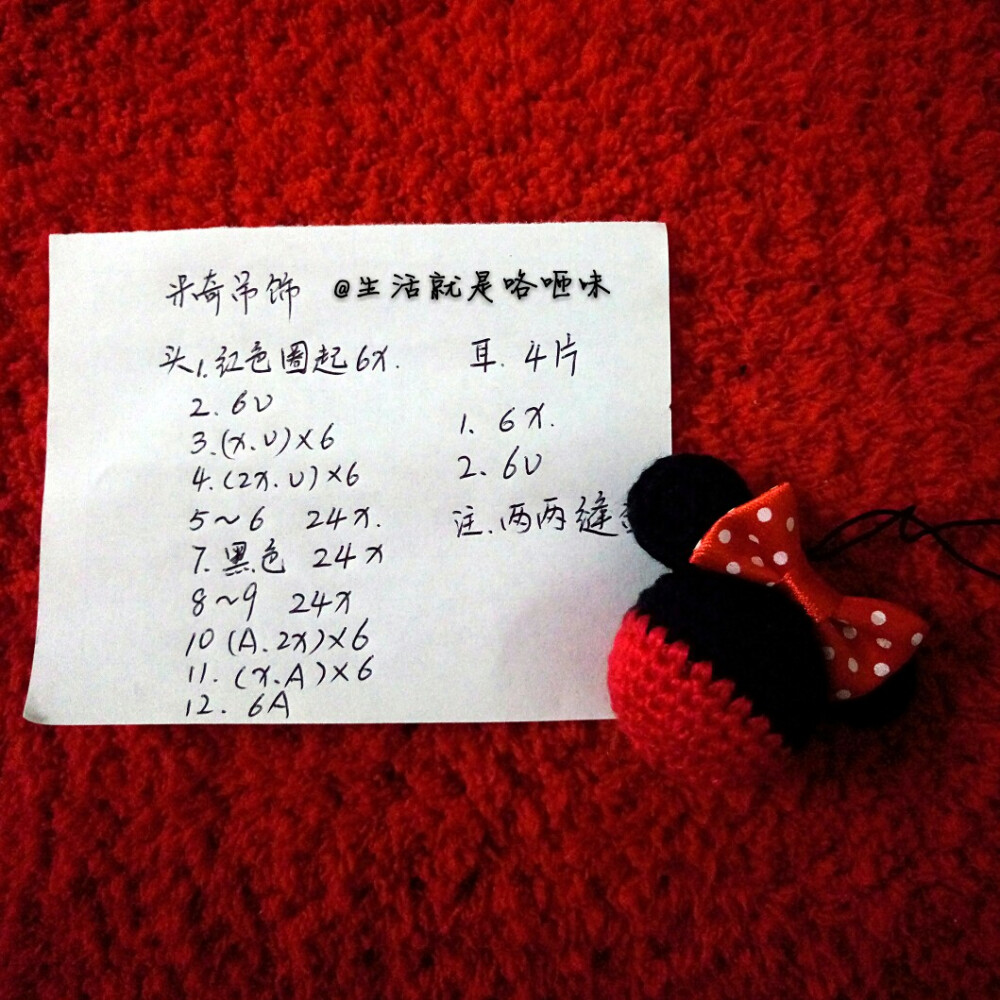 米奇吊饰 @生活就是咯咂咪
头1.红色圈起6x.
2.6V
3.(x.V)×6
4.(2x.V)×6
5~6 24x.
7.黑色 24x
8~9 24x
10(A.2x)×6
11.(x.A)×6
12. 6A
耳.4片
1. 6x.
2. 6V
注.两两缝